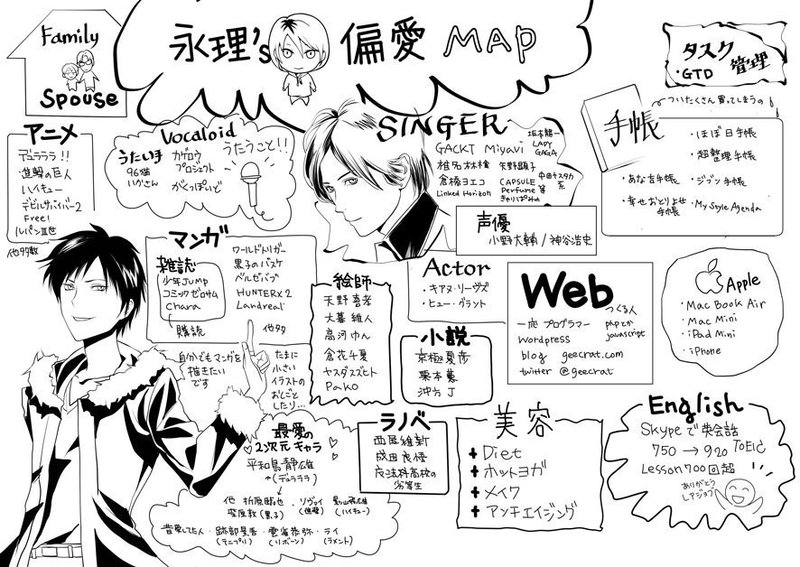 Family
Spouse
永理's 偏愛 MAP
タスク管理
・GTD
アニメ
デュラララ!!
進撃の巨人
ハイキュー
デビルサバイバー2
Free!
ルパン三世
他多数
Vocaloid
うたい手
96猫
カゲロウ
プロジェクト
がくっぽいど
うたうこと!!
SINGER
GACKT Miyavi
椎名林檎 矢野顕子
倉橋ヨエコ
Linked Horizon
CAPSULE
Perfume
きゃりーぱみゅ
坂本龍一
LADY
GAGA
中田ヤスタカ
系
声優
小野大輔/神谷浩史
手帳
ついたくさん買ってしまうの
・ほぼ日手帳
・超整理手帳
・あな吉手帳
・ジブン手帳
・幸せおとりよせ
手帳
・My Style Agenda
マンガ
雑誌
少年JUMP
コミックゼロサム
Chara
購読
ワールドトリガー
黒子のバスケ
ベルゼバブ
HUNTER×2
Landreaall
他多
自分でもマンガを
描きたい
です
たまに
小さい
イラストの
おしごと
したり…
絵師
天野喜孝
大暮維人
高河ゆん
倉花千夏
ヤスダスズヒト
Pako
Actor
・キアヌ・リーヴス
・ヒュー・グラント
小説
京極夏彦
栗本薫
沖方丁
Web
つくる人
一応プログラマー
phpとか
javascript
wordpress
blog geecrat.com
twitter @geecrat
Apple
・Mac Book Air
・Mac Mini
・iPad Mini
・iPhone
最愛の
2次元キャラ
平和島静雄
(デュラララ)
他 折原臨也
・リヴァイ
(進撃)
(黒子)
(ハイキュー)
昔愛してた人・跡部景吾・雲雀恭弥・ライ
(テニプリ)
(リボーン)
(ラメント)
ラノベ
西尾維新
成田良悟
魔法科高校の
劣等生
美容
+ Diet
+ ホットヨガ
+ メイク
+ アンチエイジング
English
Skypeで英会話
750→920 TOEIC
Lesson700回超
ありがとう
レアジョブ